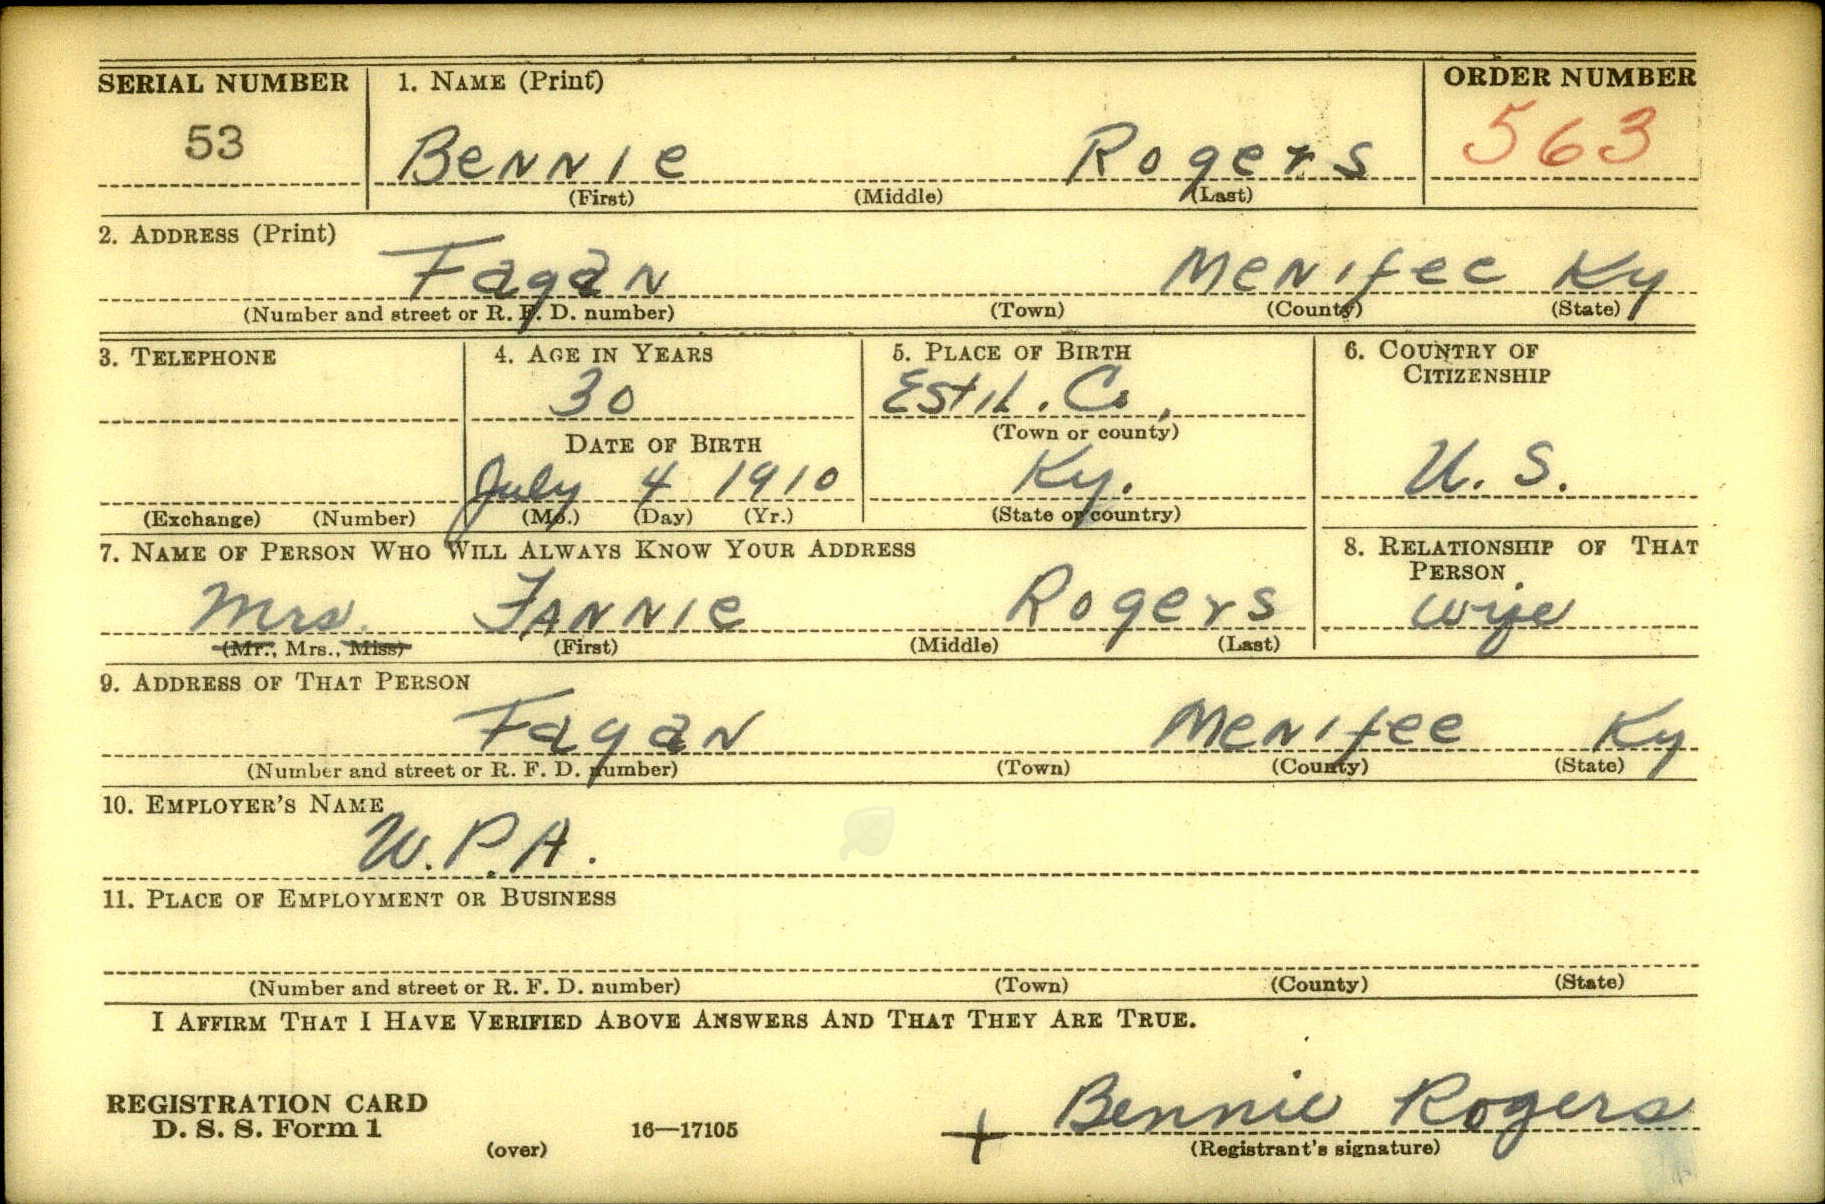 SERIAL NUMBER 1. NAME (Print) ORDER NUMBER
53 Bennie Rogers 563
(First) (Middle) (Last)
2. ADDRESS (Print)
Fagan Menifee Ky
(Number and street or R. F. D. number) (Town) (County) (State)
3. TELEPHONE 4. AGE IN YEARS 5. PLACE OF BIRTH 6. COUNTRY OF CITIZENSHIP
30 Estil. Co.,
DATE OF BIRTH (Town or county)
July 4 1910 Ky. U. S.
(Exchange) (Number) (Mo.) (Day) (Yr.) (State or country)
7. NAME OF PERSON WHO WILL ALWAYS KNOW YOUR ADDRESS 8. RELATIONSHIP OF THAT PERSON
Mrs. Fannie Rogers wife
(Mr., Mrs., Miss) (First) (Middle) (Last)
9. ADDRESS OF THAT PERSON
Fagan Menifee Ky
(Number and street or R. F. D. number) (Town) (County) (State)
10. EMPLOYER'S NAME
W.P.A.
11. PLACE OF EMPLOYMENT OR BUSINESS
(Number and street or R. F. D. number) (Town) (County) (State)
I AFFIRM THAT I HAVE VERIFIED ABOVE ANSWERS AND THAT THEY ARE TRUE.
REGISTRATION CARD
D. S. S. Form 1 (over) 16—17105 + Bennie Rogers
(Registrant's signature)